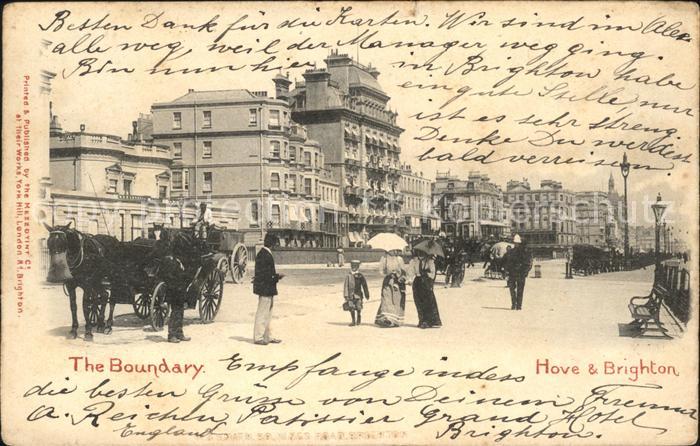 Besten Dank für die Karten. Wir sind im
alle weg, weil der Manager weg ging.
Bin nun hier in Brighton, habe
eine gute Stelle, nur
ist es sehr streng.
Denke Du werdest
bald verreisen.
Printed & Published by the Mezzotint Co.
at Their Works, York Hill, London Rd., Brighton.
The Boundary.
Hove & Brighton.
Empfange indess
die besten Grüsse von Deinem Freund
A. Reichen Patissier Grand Hotel
England Brighton.